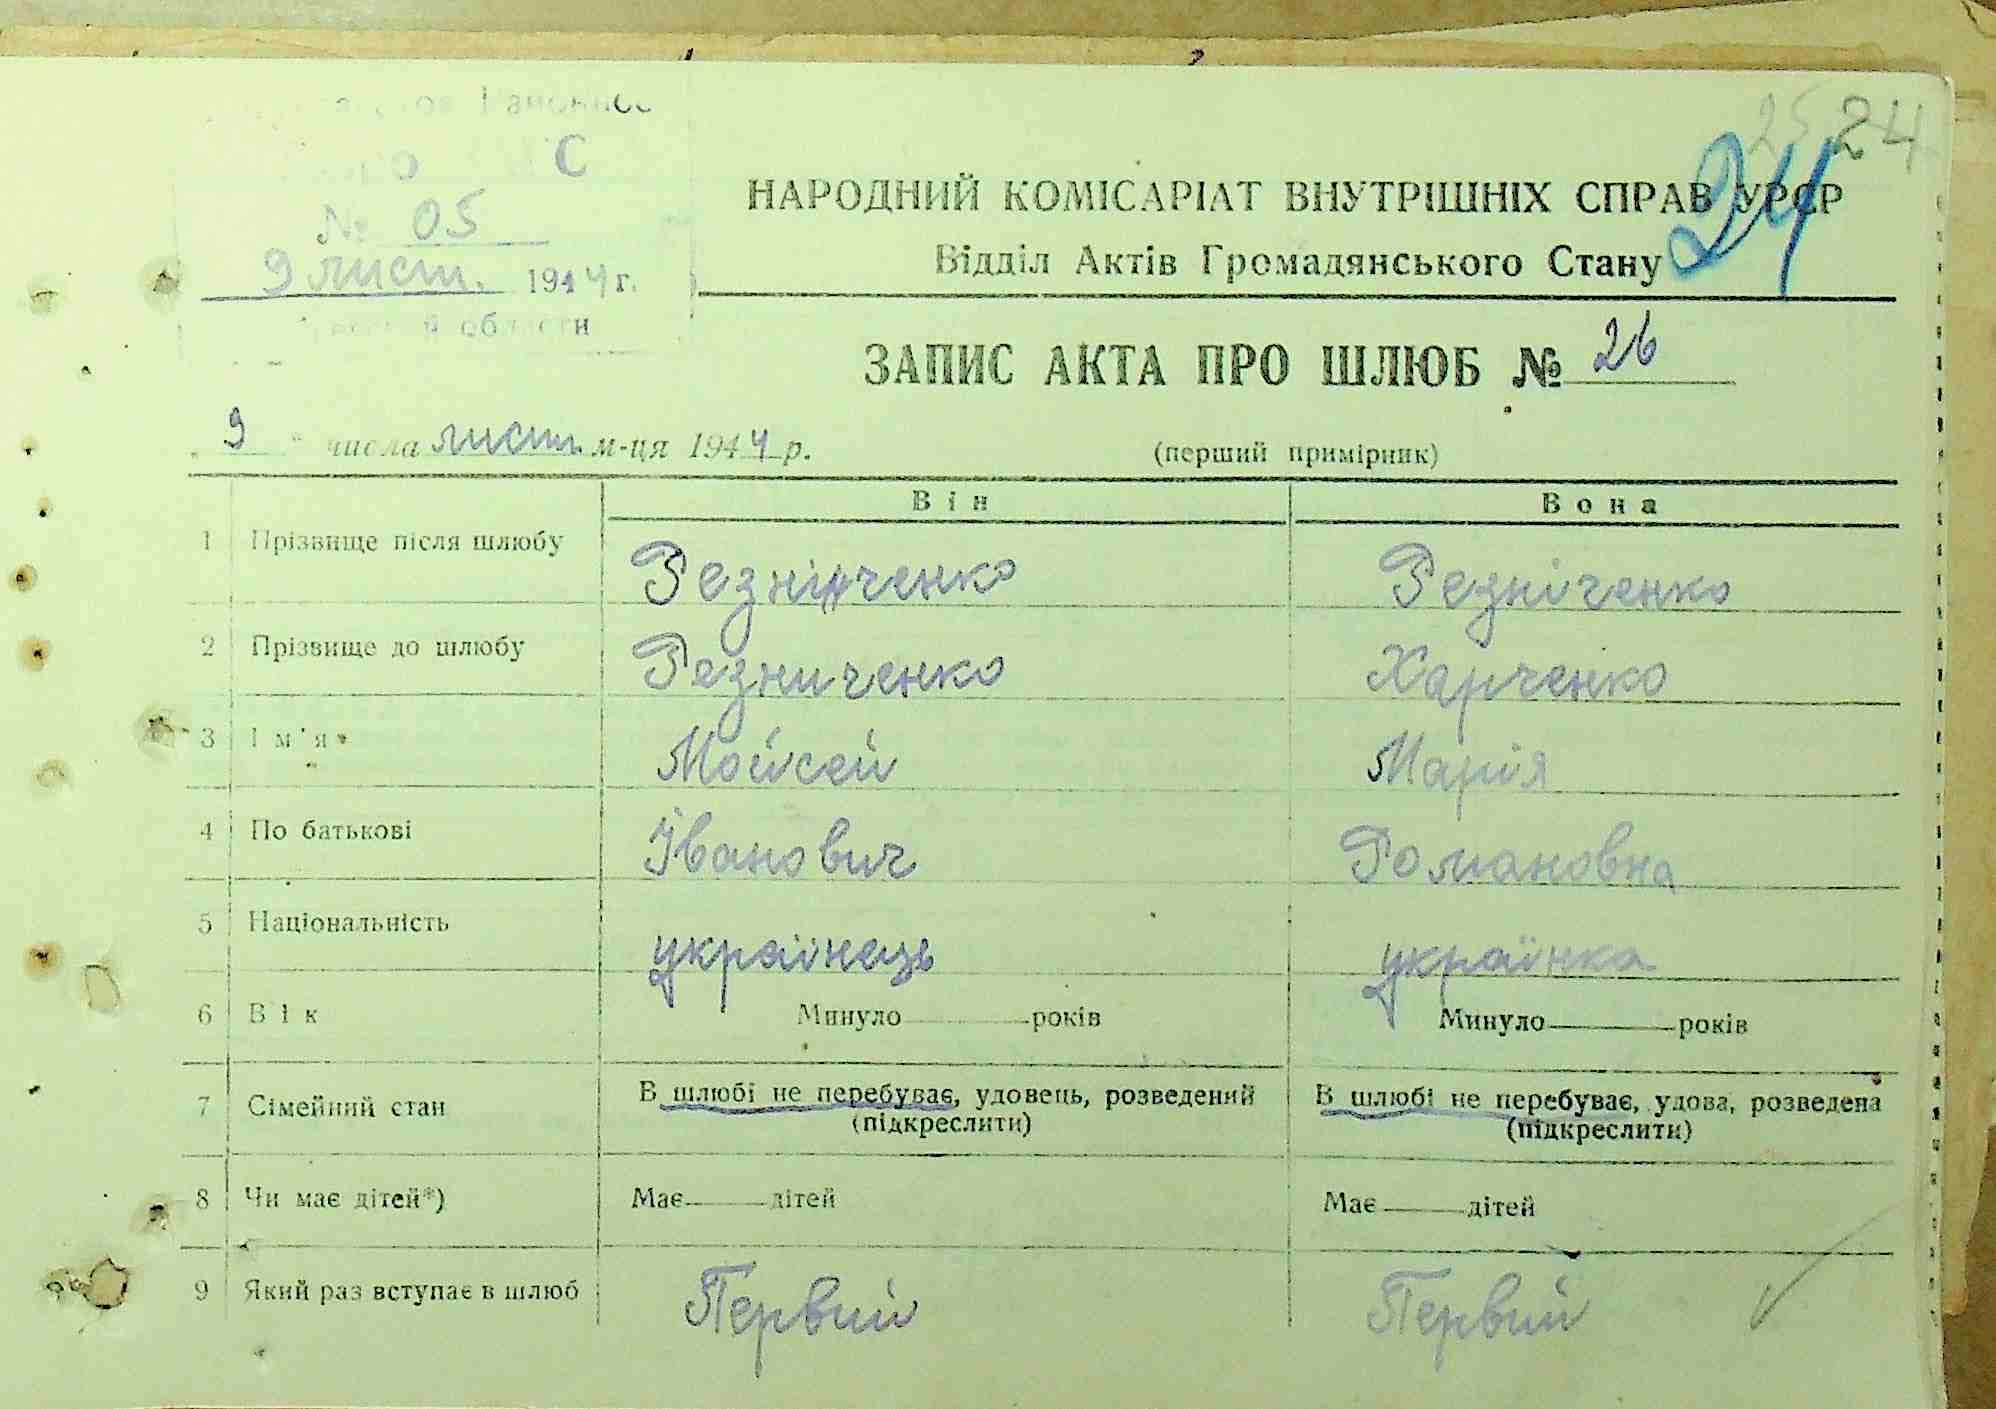 25 24
24
С
№ 05
9 лист. 1944 г.
области
НАРОДНИЙ КОМІСАРІАТ ВНУТРІШНІХ СПРАВ УРСР
Відділ Актів Громадянського Стану
ЗАПИС АКТА ПРО ШЛЮБ № 26
9 числа лист. м-ця 1944 р. (перший примірник)
Він Вона
1 Прізвище після шлюбу Резніченко Резніченко
2 Прізвище до шлюбу Резниченко Харченко
3 Ім'я Мойсей Марія
4 По батькові Іванович Романовна
5 Національність українець українка
6 Вік Минуло ______ років Минуло ______ років
7 Сімейний стан В шлюбі не перебуває, удовець, розведений (підкреслити) В шлюбі не перебуває, удова, розведена (підкреслити)
8 Чи має дітей*) Має ____ дітей Має ____ дітей
9 Який раз вступає в шлюб Первий Первий